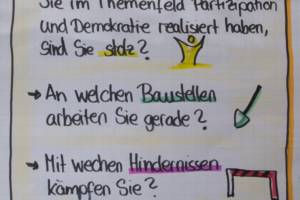 Sie im Themenfeld Partizipation
und Demokratie realisiert haben,
sind Sie stolz?
→ An welchen Baustellen
arbeiten Sie gerade?
→ Mit wechen Hindernissen
kämpfen Sie?